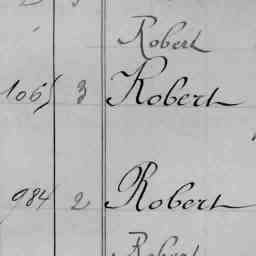 Robert
1065 3 Robert
984 2 Robert
Robert